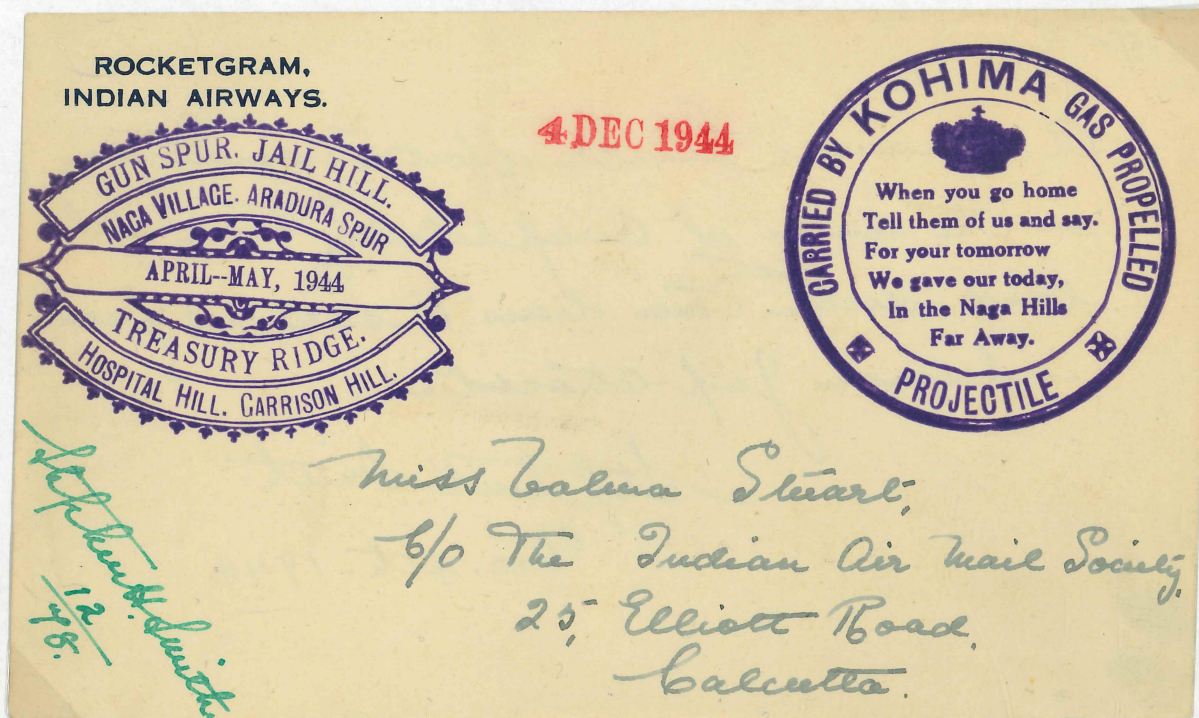 ROCKETGRAM,
INDIAN AIRWAYS.
GUN SPUR. JAIL HILL.
NAGA VILLAGE. ARADURA SPUR
APRIL--MAY, 1944
TREASURY RIDGE.
HOSPITAL HILL. GARRISON HILL.
4 DEC 1944
CARRIED BY KOHIMA GAS PROPELLED
When you go home
Tell them of us and say.
For your tomorrow
We gave our today,
In the Naga Hills
Far Away.
PROJECTILE
Miss Talma Stuart,
C/o The Indian Air Mail Society,
25, Elliott Road,
Calcutta.
Stephen H. Smith
12